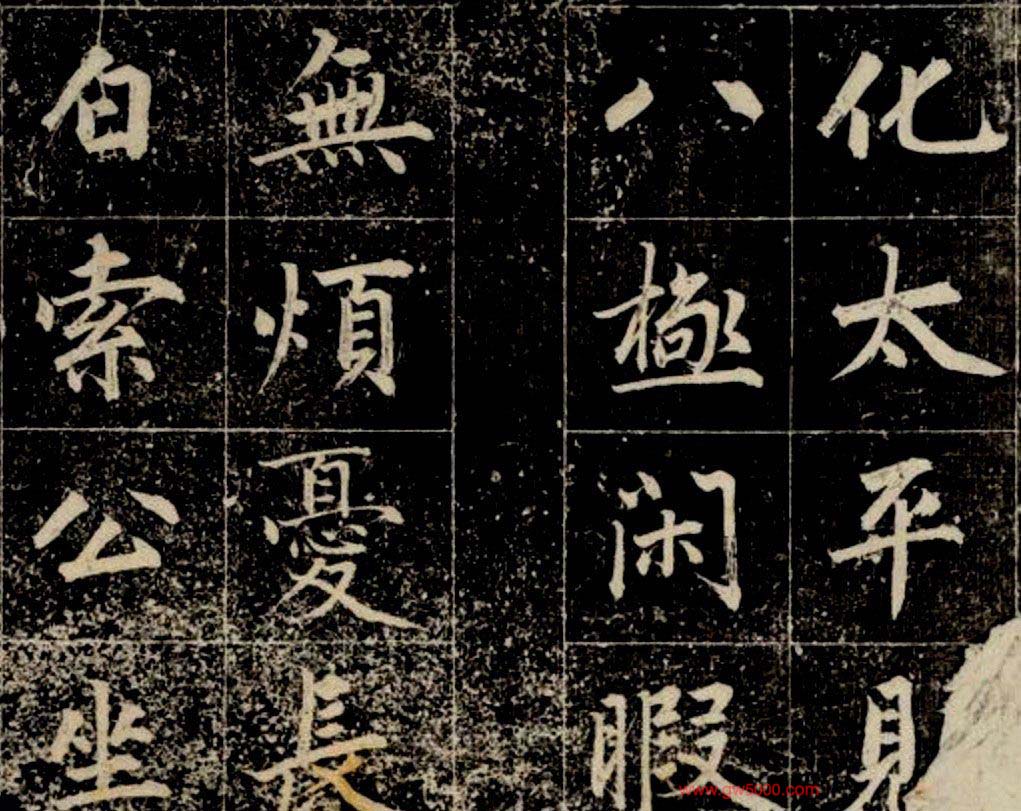 化太平見
八極閑暇
無煩憂長
白索公坐
www.gw5000.com